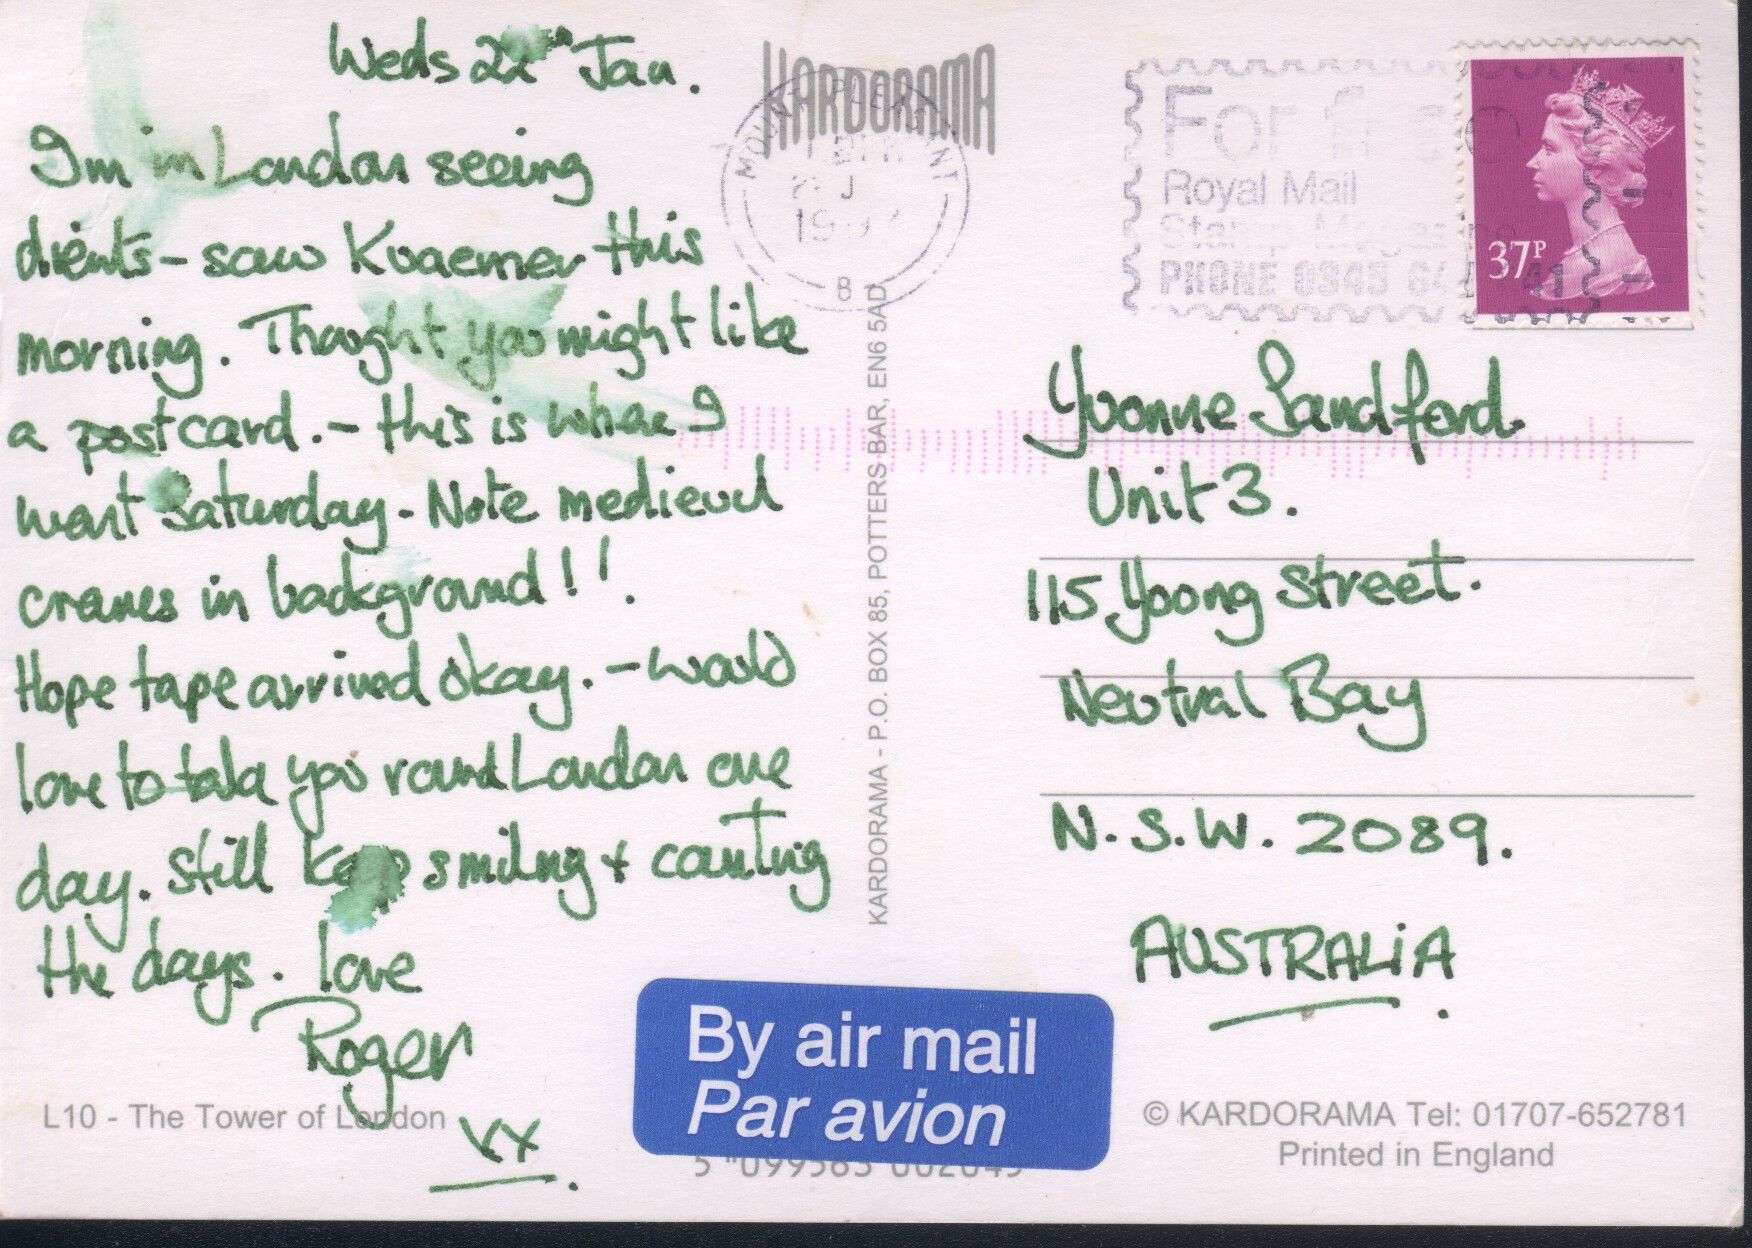 Weds 22nd Jan.
I'm in London seeing
clients - saw Kvaerner this
morning. Thought you might like
a postcard. - this is where I
went Saturday - Note medieval
cranes in background!!.
Hope tape arrived okay. - would
love to take you round London one
day. Still keep smiling + counting
the days. love
Roger
xx.
L10 - The Tower of London
KARDORAMA
MOUNT PLEASANT
B
KARDORAMA - P.O. BOX 85, POTTERS BAR, EN6 5AD
For free
Royal Mail
PHONE 0345
37P
Yvonne Sandford.
Unit 3.
115 Yoong Street.
Neutral Bay
N.S.W. 2089.
AUSTRALIA.
By air mail
Par avion
© KARDORAMA Tel: 01707-652781
Printed in England